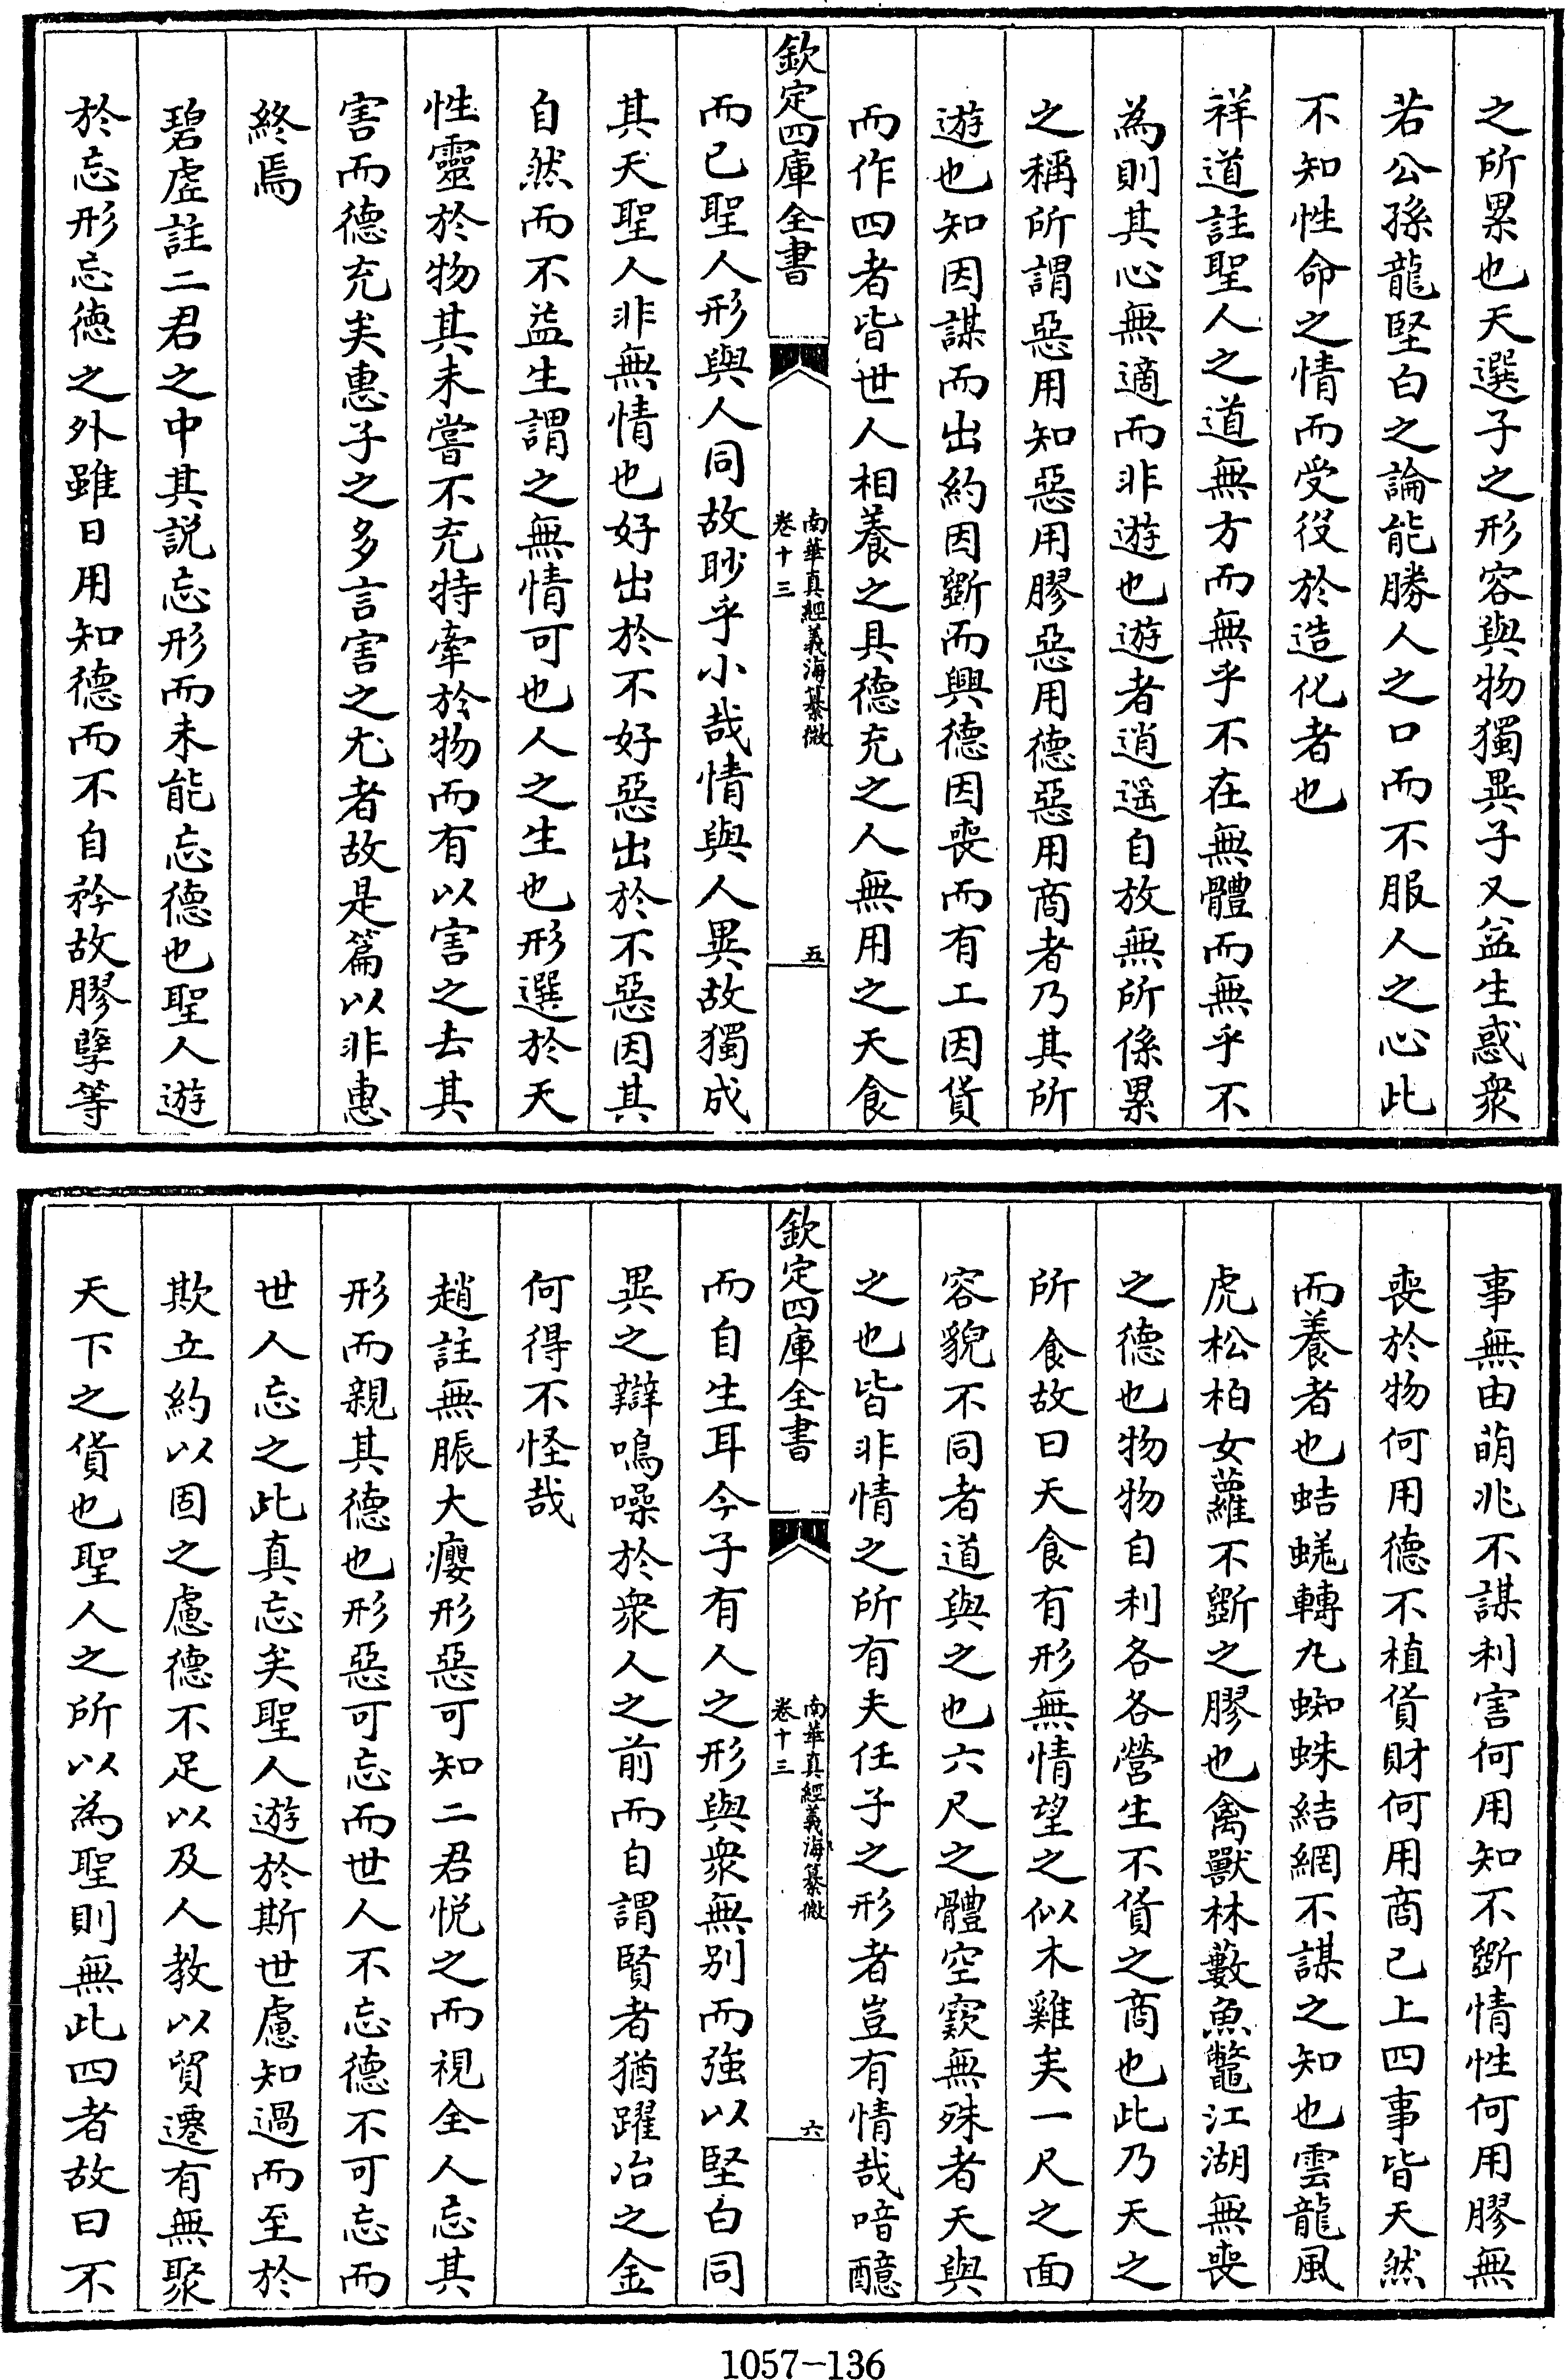 之所累也天選子之形容與物獨異子又益生惑衆
若公孫龍堅白之論能勝人之口而不服人之心此
不知性命之情而受役於造化者也
祥道註聖人之道無方而無乎不在無體而無乎不
為則其心無適而非遊也遊者逍遥自放無所係累
之稱所謂惡用知惡用膠惡用德惡用商者乃其所
遊也知因謀而出約因斵而興德因喪而有工因貨
而作四者皆世人相養之具德充之人無用之天食
欽定四庫全書
南華真經義海纂微
卷十三
五
而已聖人形與人同故眇乎小哉情與人異故獨成
其天聖人非無情也好出於不好惡出於不惡因其
自然而不益生謂之無情可也人之生也形選於天
性靈於物其未嘗不充特牽於物而有以害之去其
害而德充矣惠子之多言害之尤者故是篇以非惠
終焉
碧虛註二君之中其説忘形而未能忘德也聖人遊
於忘形忘德之外雖日用知德而不自矜故膠孽等
事無由萌兆不謀利害何用知不斵情性何用膠無
喪於物何用德不植貨財何用商已上四事皆天然
而養者也蛣蜣轉丸蜘蛛結網不謀之知也雲龍風
虎松柏女蘿不斵之膠也禽獸林藪魚鼈江湖無喪
之德也物物自利各各營生不貨之商也此乃天之
所食故曰天食有形無情望之似木雞矣一尺之面
容貌不同者道與之也六尺之體空竅無殊者天與
之也皆非情之所有夫任子之形者豈有情哉喑醷
欽定四庫全書
南華真經義海纂微
卷十三
六
而自生耳今子有人之形與衆無别而強以堅白同
異之辯鳴噪於衆人之前而自謂賢者猶躍冶之金
何得不怪哉
趙註無脤大癭形惡可知二君悦之而視全人忘其
形而親其德也形惡可忘而世人不忘德不可忘而
世人忘之此真忘矣聖人遊於斯世慮知過而至於
欺立約以固之慮德不足以及人教以貿遷有無聚
天下之貨也聖人之所以為聖則無此四者故曰不
1057-136